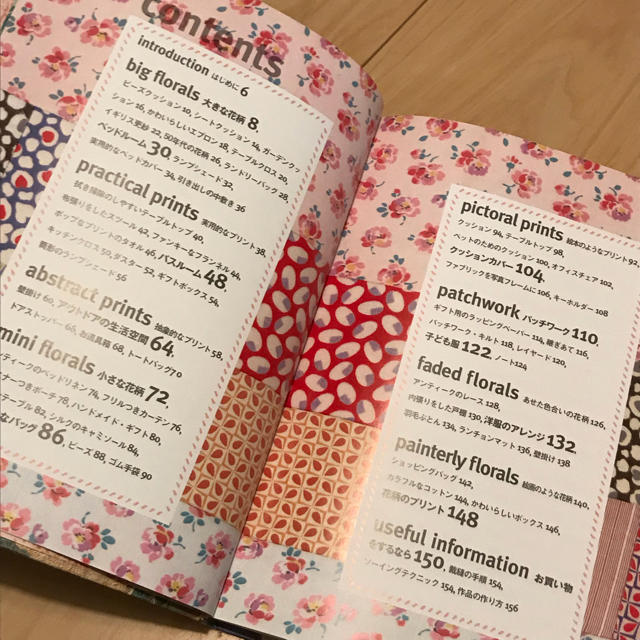 contents
Introduction はじめに 6
big florals 大きな花柄 8,
ビーズクッション 10, シートクッション 14, ガーデンクッ
ション 16, かわいらしいエプロン 18, テーブルクロス 20,
イギリス更紗 22, 50年代の花柄 26, ランドリーバッグ 28,
ベッドルーム 30, ランプシェード 32,
実用的なベッドカバー 34, 引き出しの中敷き 36
practical prints 実用的なプリント 38,
拭き掃除のしやすいテーブルトップ 40,
布張りをしたスツール 42, ファンキーなフランネル 44,
ポップなプリントのタオル 46, バスルーム 48,
キッチンクロス 50, ダスター 52, ギフトボックス 54,
円形のランプシェード 56
abstract prints 抽象的なプリント 58,
壁掛け 60, アウトドアの生活空間 64,
ドアストッパー 66, お道具箱 68, トートバッグ 70
mini florals 小さな花柄 72,
ティークのベッドリネン 74, フリルつきカーテン 76,
ナーつきポーチ 78, ハンドメイド・ギフト 80,
テーブル 82, シルクのキャミソール 84,
なバッグ 86, ビーズ 88, ゴム手袋 90
pictoral prints 絵本のようなプリント 92,
クッション 94, テーブルトップ 98,
ペットのためのクッション 100, オフィスチェア 102,
クッションカバー 104,
ファブリックを写真フレームに 106, キーホルダー 108
patchwork パッチワーク 110,
ギフト用のラッピングペーパー 114, 継ぎあて 116,
パッチワーク・キルト 118, レイヤード 120,
子ども服 122 ノート 124
faded florals あせた色合いの花柄 126,
アンティークのレース 128,
内張りをした戸棚 130, 洋服のアレンジ 132,
羽毛ぶとん 134, ランチョンマット 136, 壁掛け 138
painterly florals 絵画のような花柄 140,
ショッピングバッグ 142,
カラフルなコットン 144, かわいらしいボックス 146,
花柄のプリント 148
useful information お買い物
をするなら 150, 裁縫の手順 154,
ソーイングテクニック 154, 作品の作り方 156